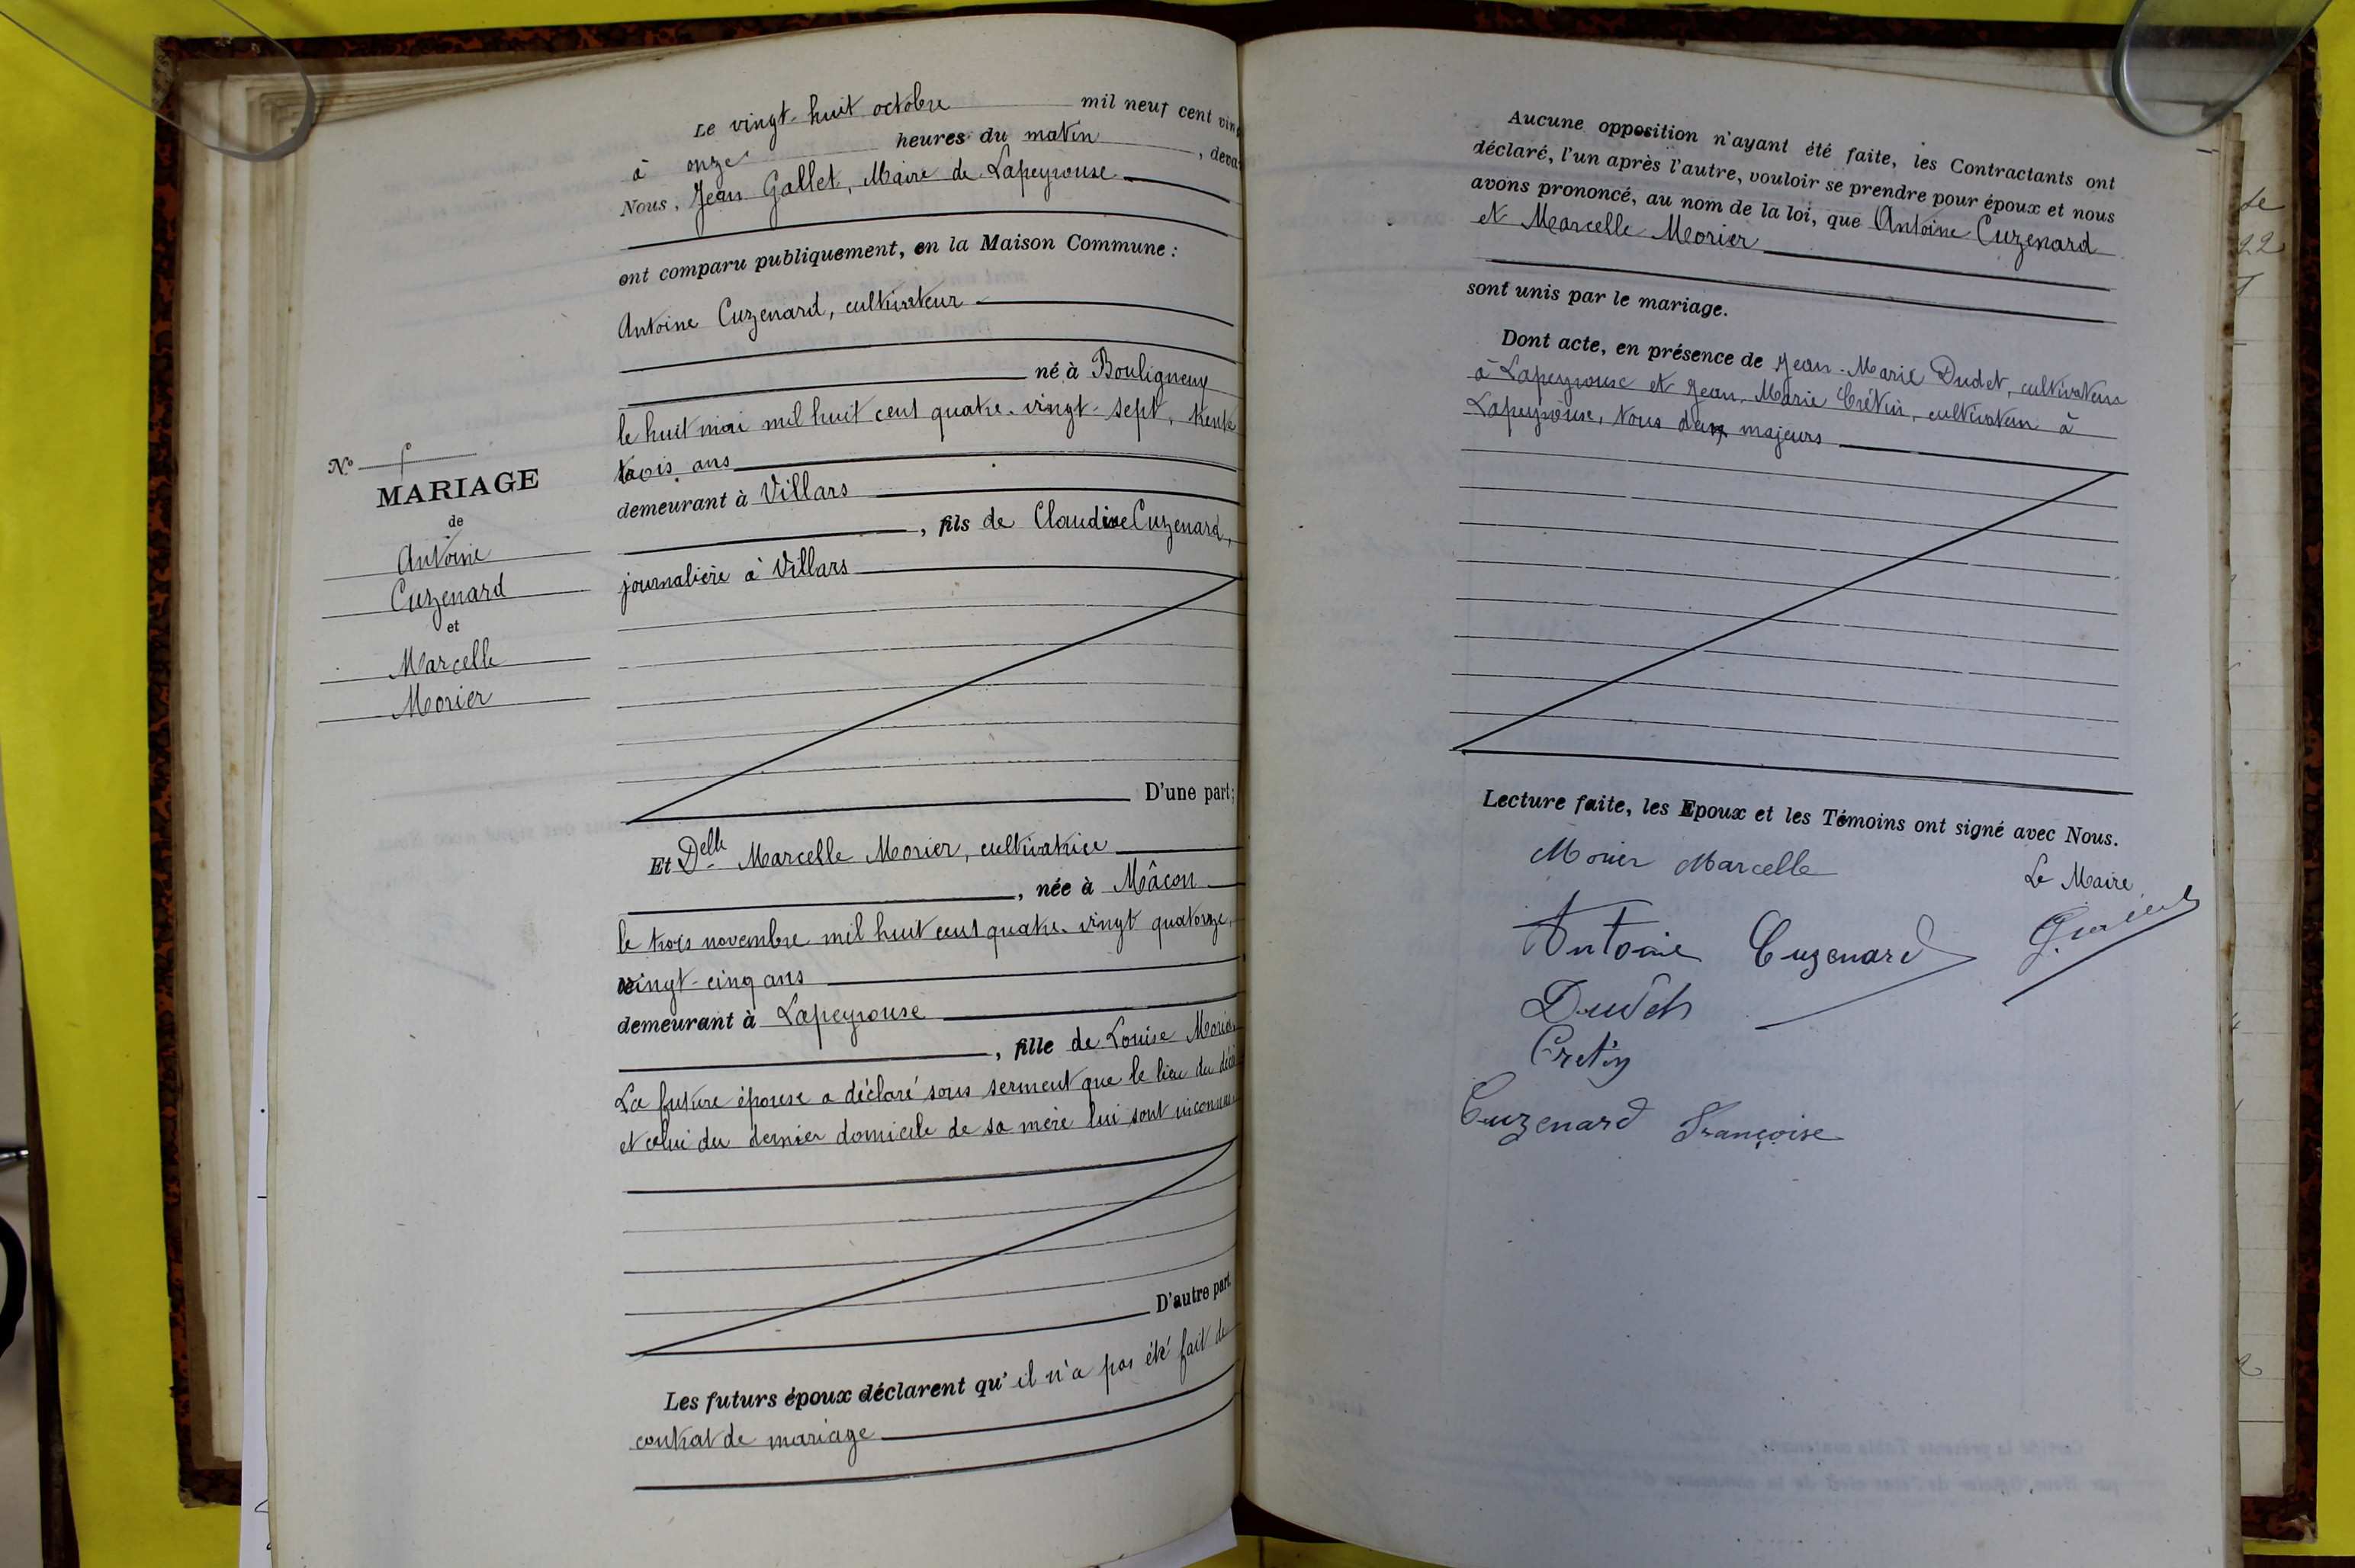 Le vingt-huit octobre mil neuf cent
à onze heures du matin
Nous, Jean Gallet, Maire de Lapeyrouse
ont comparu publiquement, en la Maison Commune :
Antoine Cuzenard, cultivateur
né à Bouligneux
le huit mai mil huit cent quatre-vingt-sept, trente
trois ans
demeurant à Villars
, fils de Claudine Cuzenard,
journalière à Villars
D'une part;
N°
MARIAGE
de
Antoine
Cuzenard
et
Marcelle
Morier
Et Delle Marcelle Morier, cultivatrice
, née à Mâcon
le trois novembre mil huit cent quatre-vingt quatorze,
vingt-cinq ans
demeurant à Lapeyrouse
, fille de Louise Morier
La future épouse a déclaré sous serment que le lieu du
et celui du dernier domicile de sa mère lui sont inconnus
D'autre part
Les futurs époux déclarent qu'il n'a pas été fait de
contrat de mariage
Aucune opposition n'ayant été faite, les Contractants ont
déclaré, l'un après l'autre, vouloir se prendre pour époux et nous
avons prononcé, au nom de la loi, que Antoine Cuzenard
et Marcelle Morier
sont unis par le mariage.
Dont acte, en présence de Jean-Marie Dudet, cultivateur
à Lapeyrouse et Jean-Marie Crétin, cultivateur à
Lapeyrouse, tous deux majeurs
Lecture faite, les Epoux et les Témoins ont signé avec Nous.
Morier Marcelle
Le Maire
Antoine Cuzenard
Dudet
Cretin
Cuzenard Françoise
22